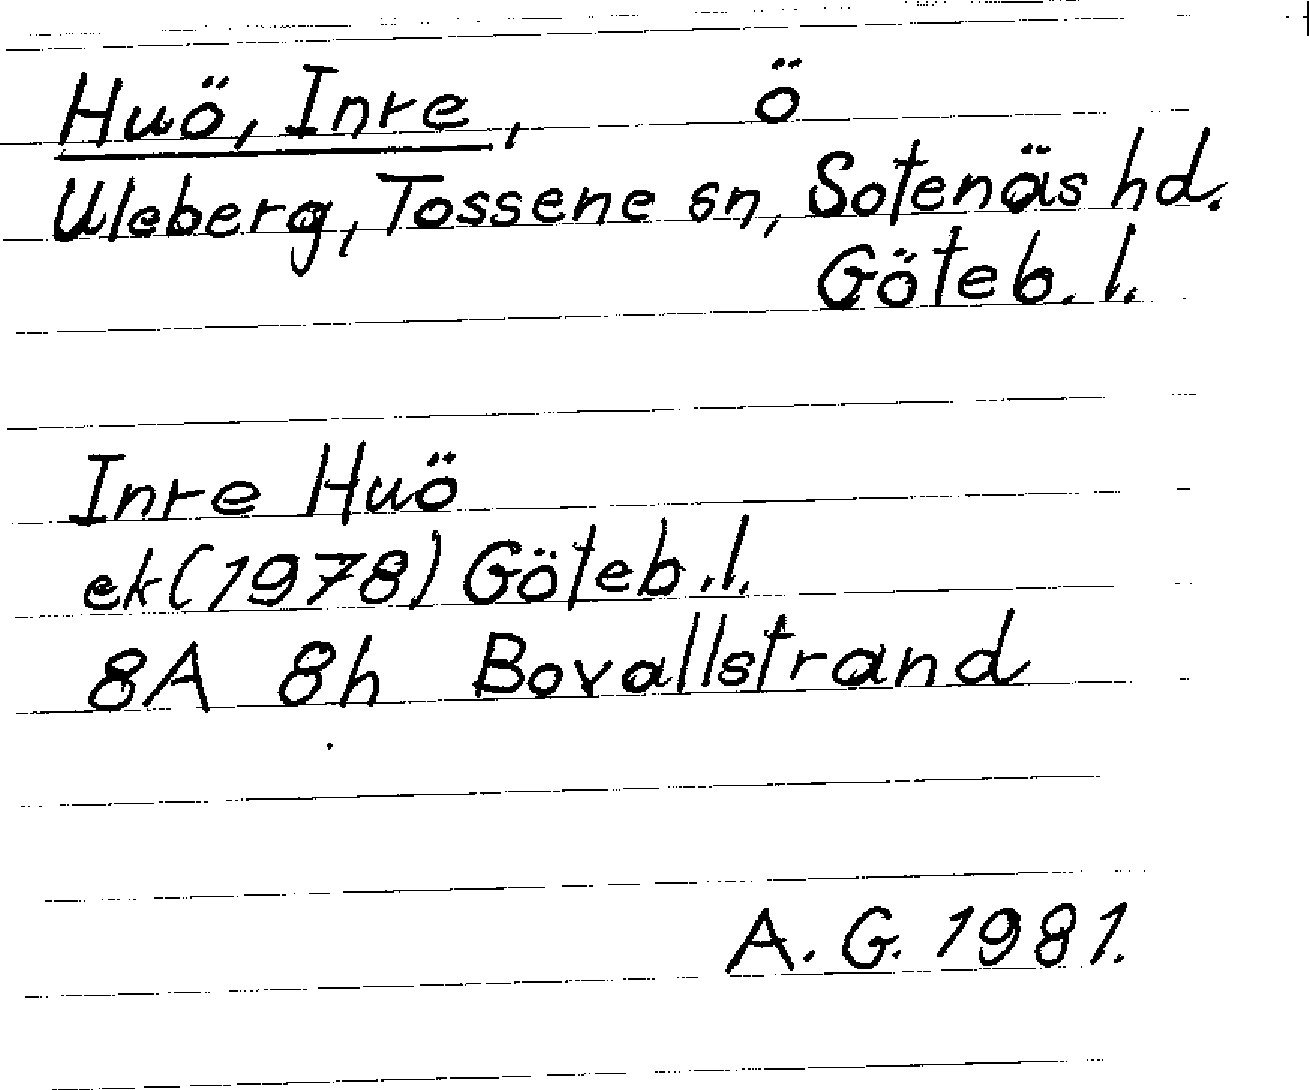 Huö, Inre, ö
Uleberg, Tossene sn, Sotenäs hd.
Göteb. l.
Inre Huö
ek (1978) Göteb. l.
8A 8h Bovallstrand
A. G. 1981.